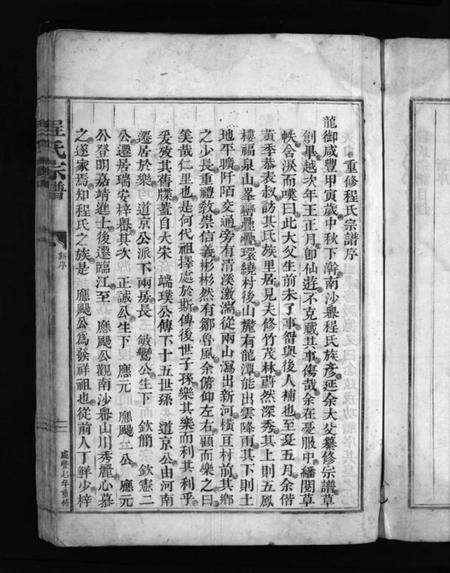 重修程氏宗譜序
龍御咸豐甲寅歲中秋下澣南沙舉程氏族彥延余大父纂修宗譜草
創畢越次年王正月卽仙莊不克蕆其事傷哉余在憂服中繙閱草
帙含淚而嘆曰此大父生前未了事留與後人補也至夏五月余偕
黃季恭表叔訪其氏族里居見夫修竹茂林蔚然深秀其上則五鳳
樓福泉山峯巒疊疊環繞村後山麓有龍潭能出雲降雨其下則土
地平曠阡陌交通旁有清溪激湍從兩山瀉出新河橫亘村前其鄉
之少長重禮敎崇信義彬彬然有鄒魯風余俯仰左右顧而樂之曰
美哉仁里也是何代祖擇處於斯傳後世子孫樂其樂而利其利乎
爰發其舊牒葢自大宋 端璞公傳下十五世孫 道京公由河南
遷居於樂 道京公派下兩房長 敏鸞公生下 欽簡 欽憲二
公遷居瑞安梓嶴其次 正誠公生下 應元 應颺二公 應元
公登明嘉靖進士後遷臨江至 應颺公觀南沙嶴山川秀麗心慕
之遂家焉知程氏之族是 應颺公爲發祥祖也從前人丁鮮少梓
程氏宗譜
序
咸豐七年重修